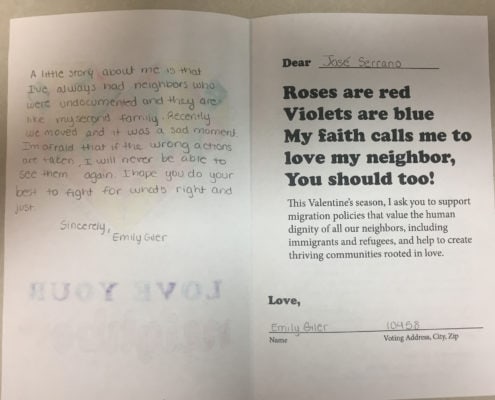 A little story about me is that
I've always had neighbors who
were undocumented and they are
like my second family. Recently
we moved and it was a sad moment.
I'm afraid that if the wrong actions
are taken, I will never be able to
see them again. I hope you do your
best to fight for whats right and
just.
Sincerely,
Emily Giler
LOVE YOUR
neighbor
Dear José Serrano
Roses are red
Violets are blue
My faith calls me to
love my neighbor,
You should too!
This Valentine's season, I ask you to support
migration policies that value the human
dignity of all our neighbors, including
immigrants and refugees, and help to create
thriving communities rooted in love.
Love,
Emily Giler 10458
Name Voting Address, City, Zip